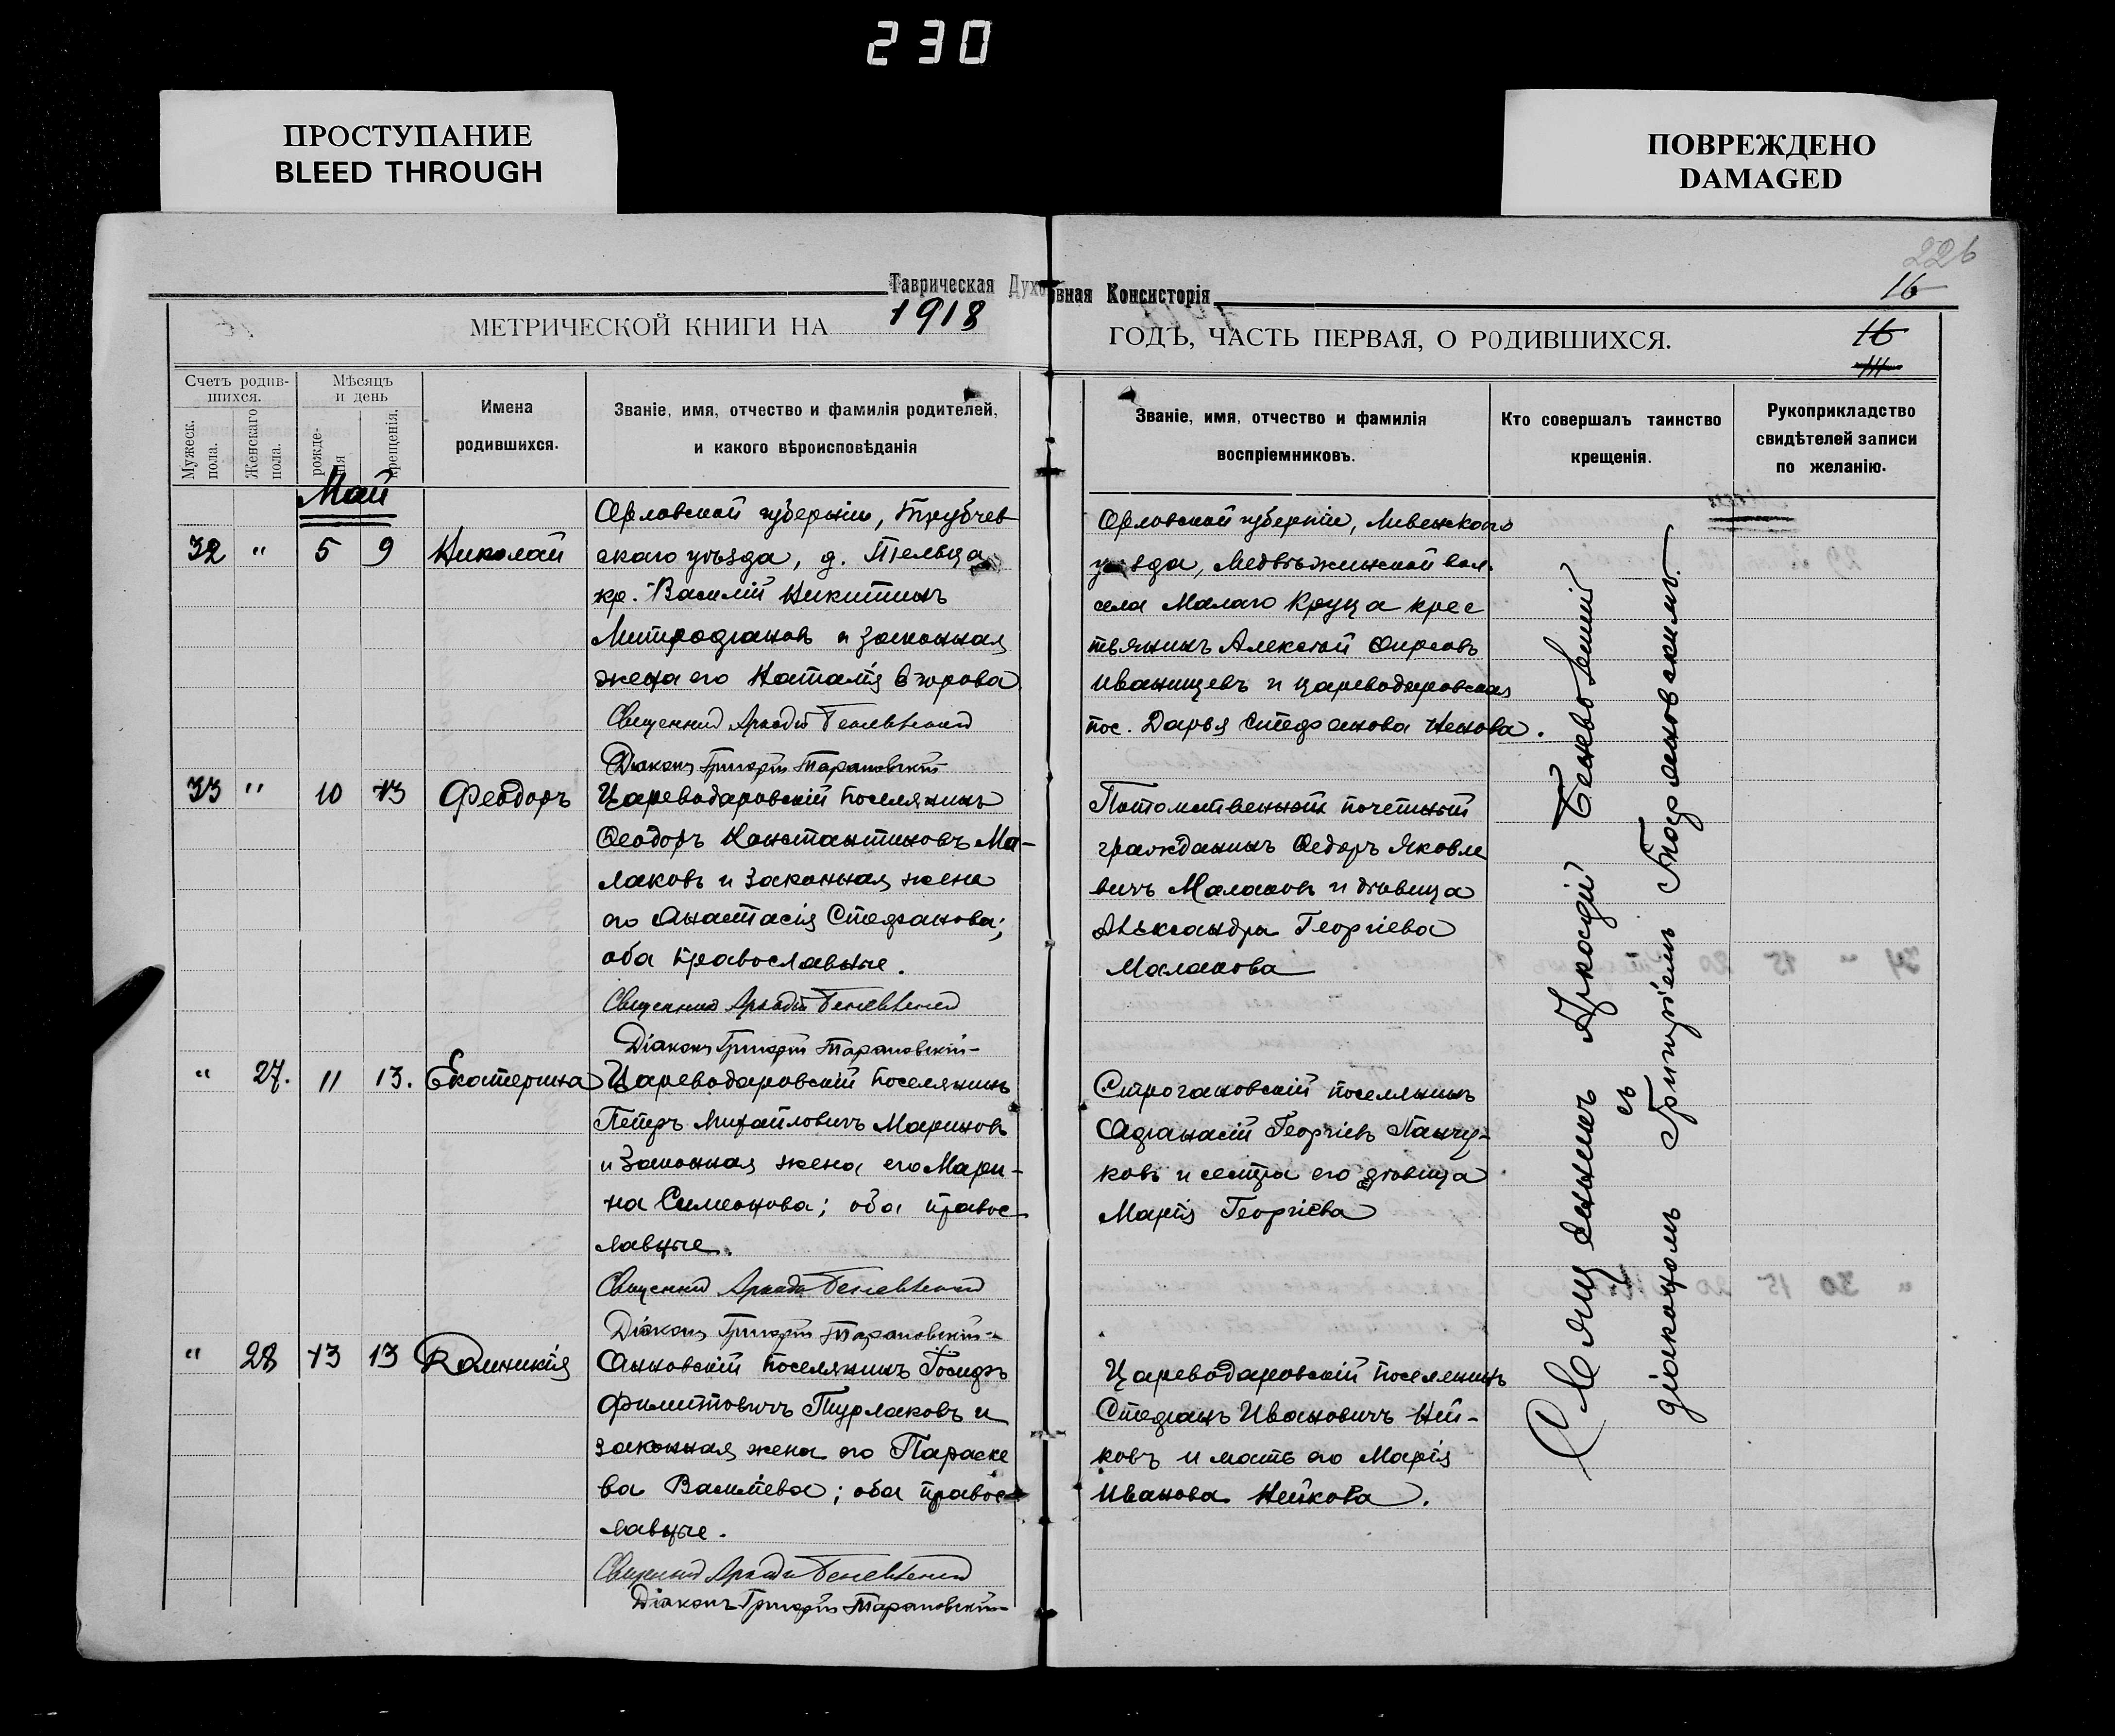 230
ПРОСТУПАНИЕ
BLEED THROUGH
ПОВРЕЖДЕНО
DAMAGED
226
16
Таврическая Духовная Консисторія
МЕТРИЧЕСКОЙ КНИГИ НА 1918
ГОДЪ, ЧАСТЬ ПЕРВАЯ, О РОДИВШИХСЯ.
16
Счетъ родив-
шихся.
Мужеск. пола.
Женскаго пола.
Мѣсяцъ
и день
рожде-
нія
крещенія.
Имена
родившихся.
Званіе, имя, отчество и фамилія родителей,
и какого вѣроисповѣданія
Званіе, имя, отчество и фамилія
воспріемниковъ.
Кто совершалъ таинство
крещенія.
Рукоприкладство
свидѣтелей записи
по желанію.
Май
32 " 5 9 Николай
Орловской губерніи, Трубчев
скаго уѣзда, д. Тельца
кр. Василій Никитинъ
Митрофановъ и законная
жена его Наталія Егорова
Священник Аркадій Беневоленский
Діаконъ Григорій Тарановскій
Орловской губерніи, Ливенскаго
уѣзда, Медвѣжинской вол.
села Малаго Круца крес
тьянинъ Алексѣй Фирсовъ
Иванищевъ и цареводаровская
пос. Дарья Стефанова Ненова.
33 " 10 13 Феодоръ
Цареводаровскій поселянинъ
Ѳеодоръ Константиновъ Ма-
лаковъ и законная жена
его Анастасія Стефанова;
оба православные.
Священник Аркадій Беневоленский
Діаконъ Григорій Тарановскій
Потомственный почетный
гражданинъ Ѳедоръ Яковле
вичъ Малаковъ и дѣвица
Александра Георгіева
Малакова
" 27. 11 13. Екатерина
Цареводаровскій поселянинъ
Петръ Михайловичъ Мариновъ
и законная жена его Мари-
на Симеонова; оба правос
лавные.
Священник Аркадій Беневоленский
Діаконъ Григорій Тарановскій
Строгановскій поселянинъ
Афанасій Георгіевъ Панчу-
ковъ и сестра его дѣвица
Марія Георгіева
" 28 13 13 Калиникія
Анновскій поселянинъ Іосифъ
Филипповичъ Турлаковъ и
законная жена его Параске
ва Васильева; оба правос
лавные.
Священник Аркадій Беневоленский
Діаконъ Григорій Тарановскій
Цареводаровскій поселянинъ
Стефанъ Ивановичъ Ней-
ковъ и мать его Марія
Иванова Нейкова.
Священникъ Аркадій Беневоленский
съ
діакономъ Григоріемъ Тарановскимъ.